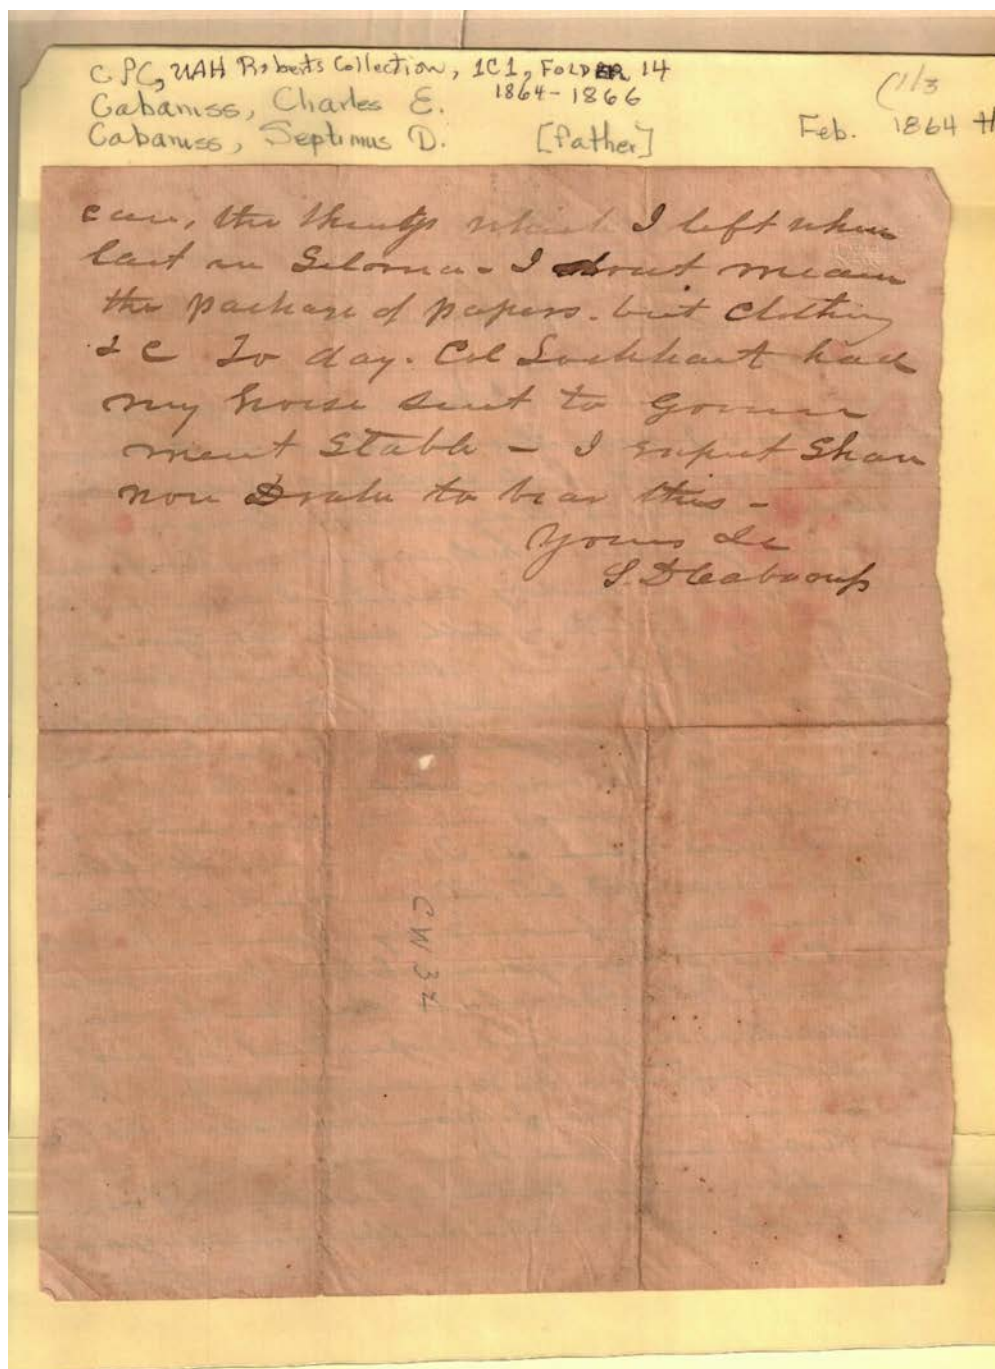 CPC, UAH Roberts Collection, 1C1, FOLDER 14
1864-1866
Cabaniss, Charles E.
Cabaniss, Septimus D. [father]
Feb. 1864
can, the things which I left when
last in Selma - I dont mean
the package of papers. but Clothing
&c To day. Col Lockhart had
my horse sent to Govern
ment Stable - I expect Shan
non Drake to bear this -
Yours &c
S. D Cabaniss
CW 34